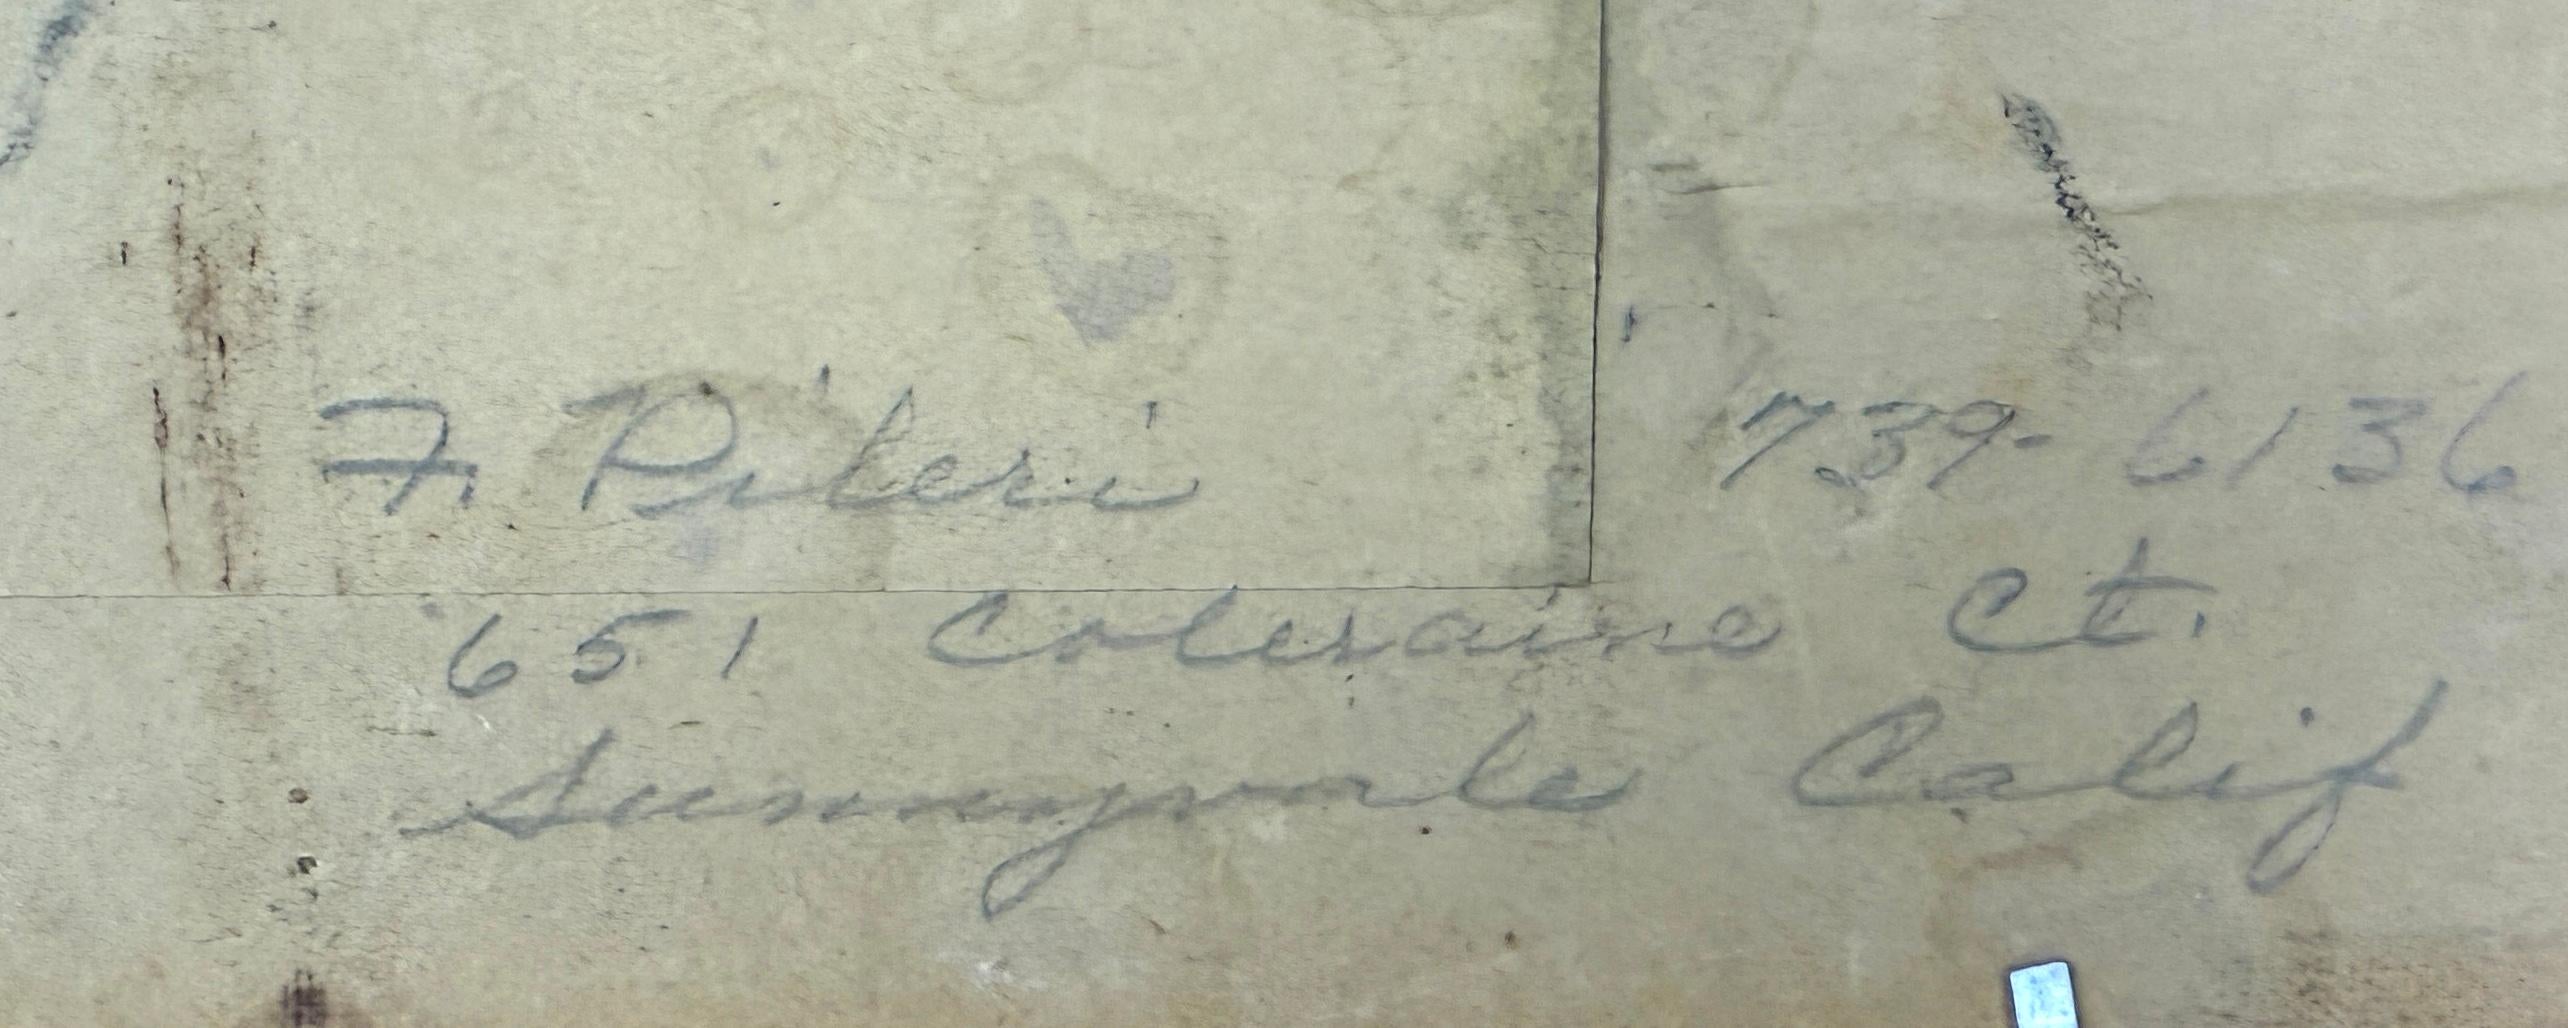 F Pileri 739-6136
651 Coleraine Ct.
Sunnyvale Calif